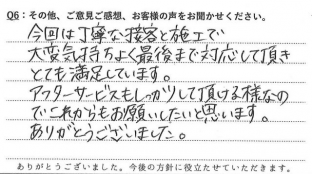 Q6：その他、ご意見ご感想、お客様の声をお聞かせください。
今回は丁寧な接客と施工で
大変気持ちよく最後まで対応して頂き
とても満足しています。
アフターサービスもしっかりして頂ける様なの
でこれからもお願いしたいと思います。
ありがとうございました。
ありがとうございました。今後の方針に役立たせていただきます。